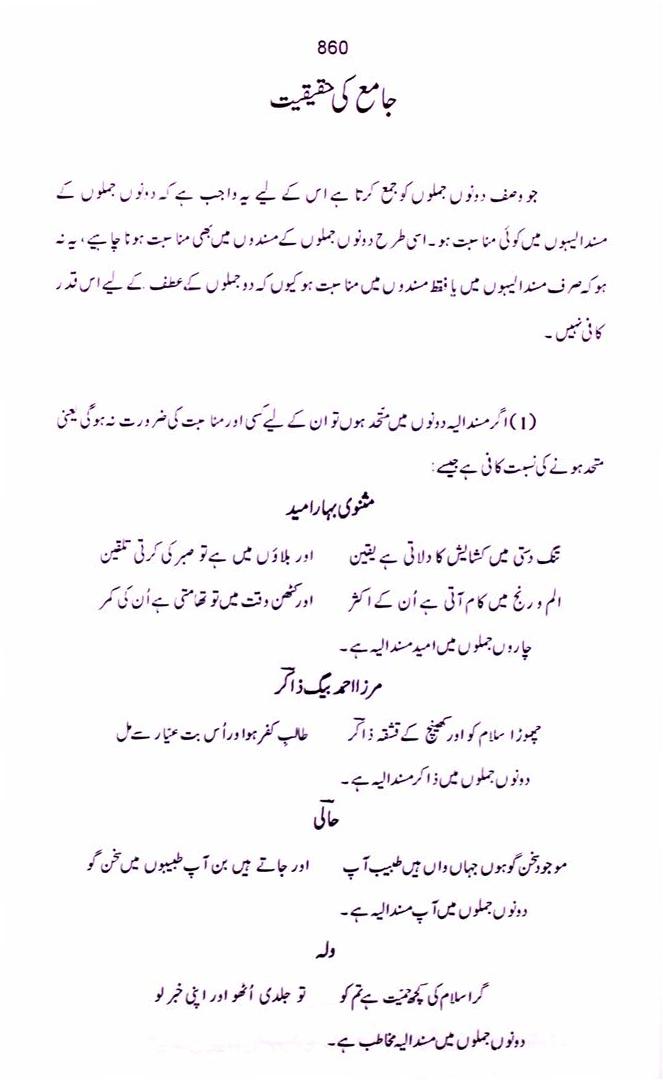 860
جامع کی حقیقیت
جو وصف دونوں جملوں کو جمع کرتا ہے اس کے لیے یہ واجب ہے کہ دونوں جملوں کے
مندالیہوں میں کوئی مناسبت ہو۔ اسی طرح دونوں جملوں کے مندوں میں بھی مناسبت ہونا چاہیے، یہ نہ
ہو کہ صرف مندالیہوں میں یا فقط مندوں میں مناسبت ہو کیوں کہ دو جملوں کے عطف کے لیے اس قدر
کافی نہیں۔
(1) اگر مندالیہ دونوں میں متحد ہوں تو ان کے لیے کسی اور مناسبت کی ضرورت نہ ہوگی یعنی
متحد ہونے کی نسبت کافی ہے جیسے:
مثنوی بہار امید
تنگ دستی میں کشایش کا دلاتی ہے یقین اور بلاؤں میں ہے تو صبر کی کرتی تلقین
الم و رنج میں کام آتی ہے اُن کے اکثر اور کٹھن وقت میں تو تھامتی ہے اُن کی کمر
چاروں جملوں میں امید مندالیہ ہے۔
مرزا احمد بیگ ذاکر
چھوڑ اسلام کو اور کھینچ کے قشقہ ذاکر طالبِ کفر ہوا اور اُس بت عیّار سے مل
دونوں جملوں میں ذاکر مندالیہ ہے۔
حالی
موجود سخن گو ہوں جہاں واں ہیں طبیب آپ اور جاتے ہیں بن آپ طبیبوں میں سخن گو
دونوں جملوں میں آپ مندالیہ ہے۔
ولہ
گر اسلام کی کچھ حمیّت ہے تم کو تو جلدی اُٹھو اور اپنی خبر لو
دونوں جملوں میں مندالیہ مخاطب ہے۔